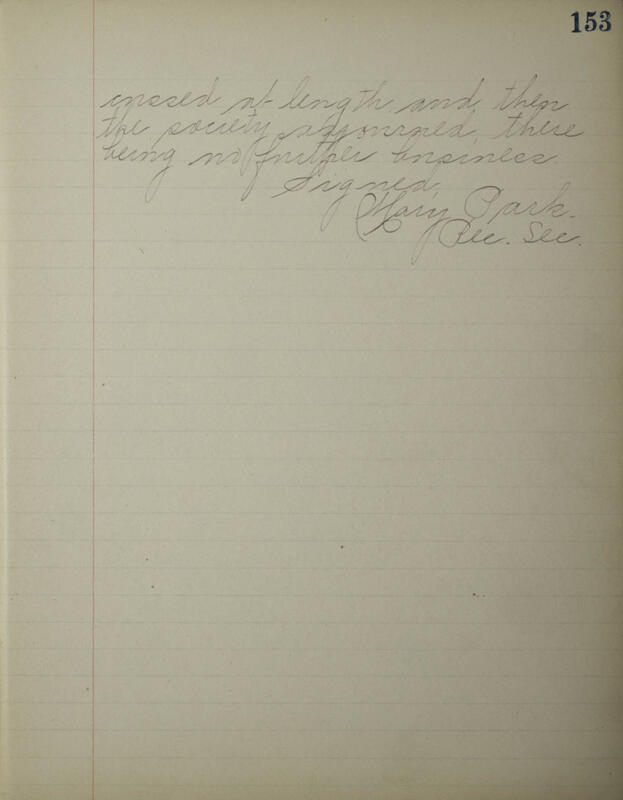 153
cussed at length and then
the society adjourned, there
being no further business.
Signed,
Mary Park.
Rec. Sec.